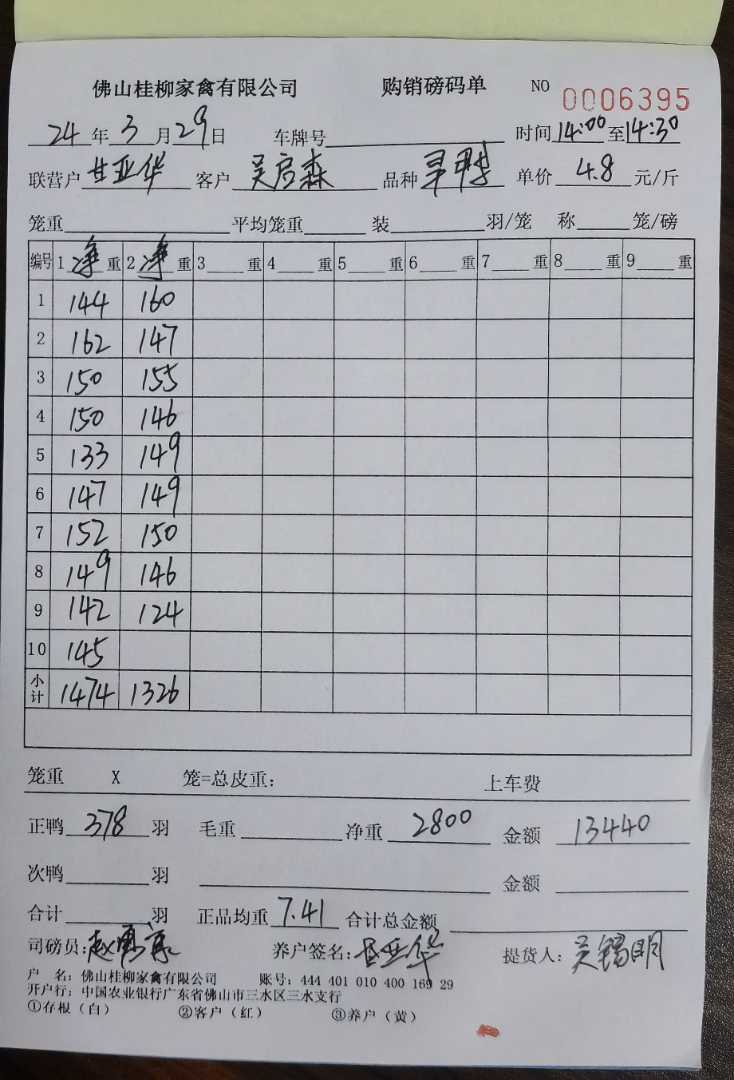 佛山桂柳家禽有限公司 购销磅码单 NO 0006395
24年3月29日 车牌号 时间14:00至14:30
联营户 甘亚华 客户 吴启森 品种 单价 4.8 元/斤
笼重 平均笼重 装 羽/笼 称 笼/磅
编号 1 净 重 2 净 重 3 重 4 重 5 重 6 重 7 重 8 重 9 重
1 144 160
2 162 147
3 150 155
4 150 146
5 133 149
6 147 149
7 152 150
8 149 146
9 142 124
10 145
小计 1474 1326
笼重 X 笼=总皮重: 上车费
正鸭 378 羽 毛重 净重 2800 金额 13440
次鸭 羽 金额
合计 羽 正品均重 7.41 合计总金额
司磅员: 赵 养户签名: 甘亚华 提货人: 吴锡明
户 名: 佛山桂柳家禽有限公司 账号: 444 401 010 400 169 29
开户行: 中国农业银行广东省佛山市三水区三水支行
①存根(白) ②客户(红) ③养户(黄)